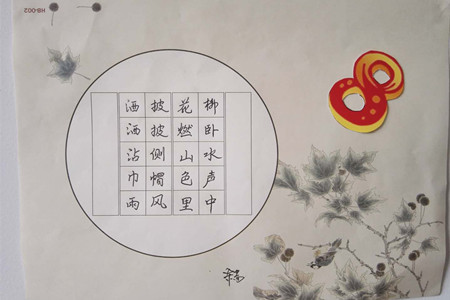 洒洒沾巾雨
披披侧帽风
花燃山色里
柳卧水声中
8